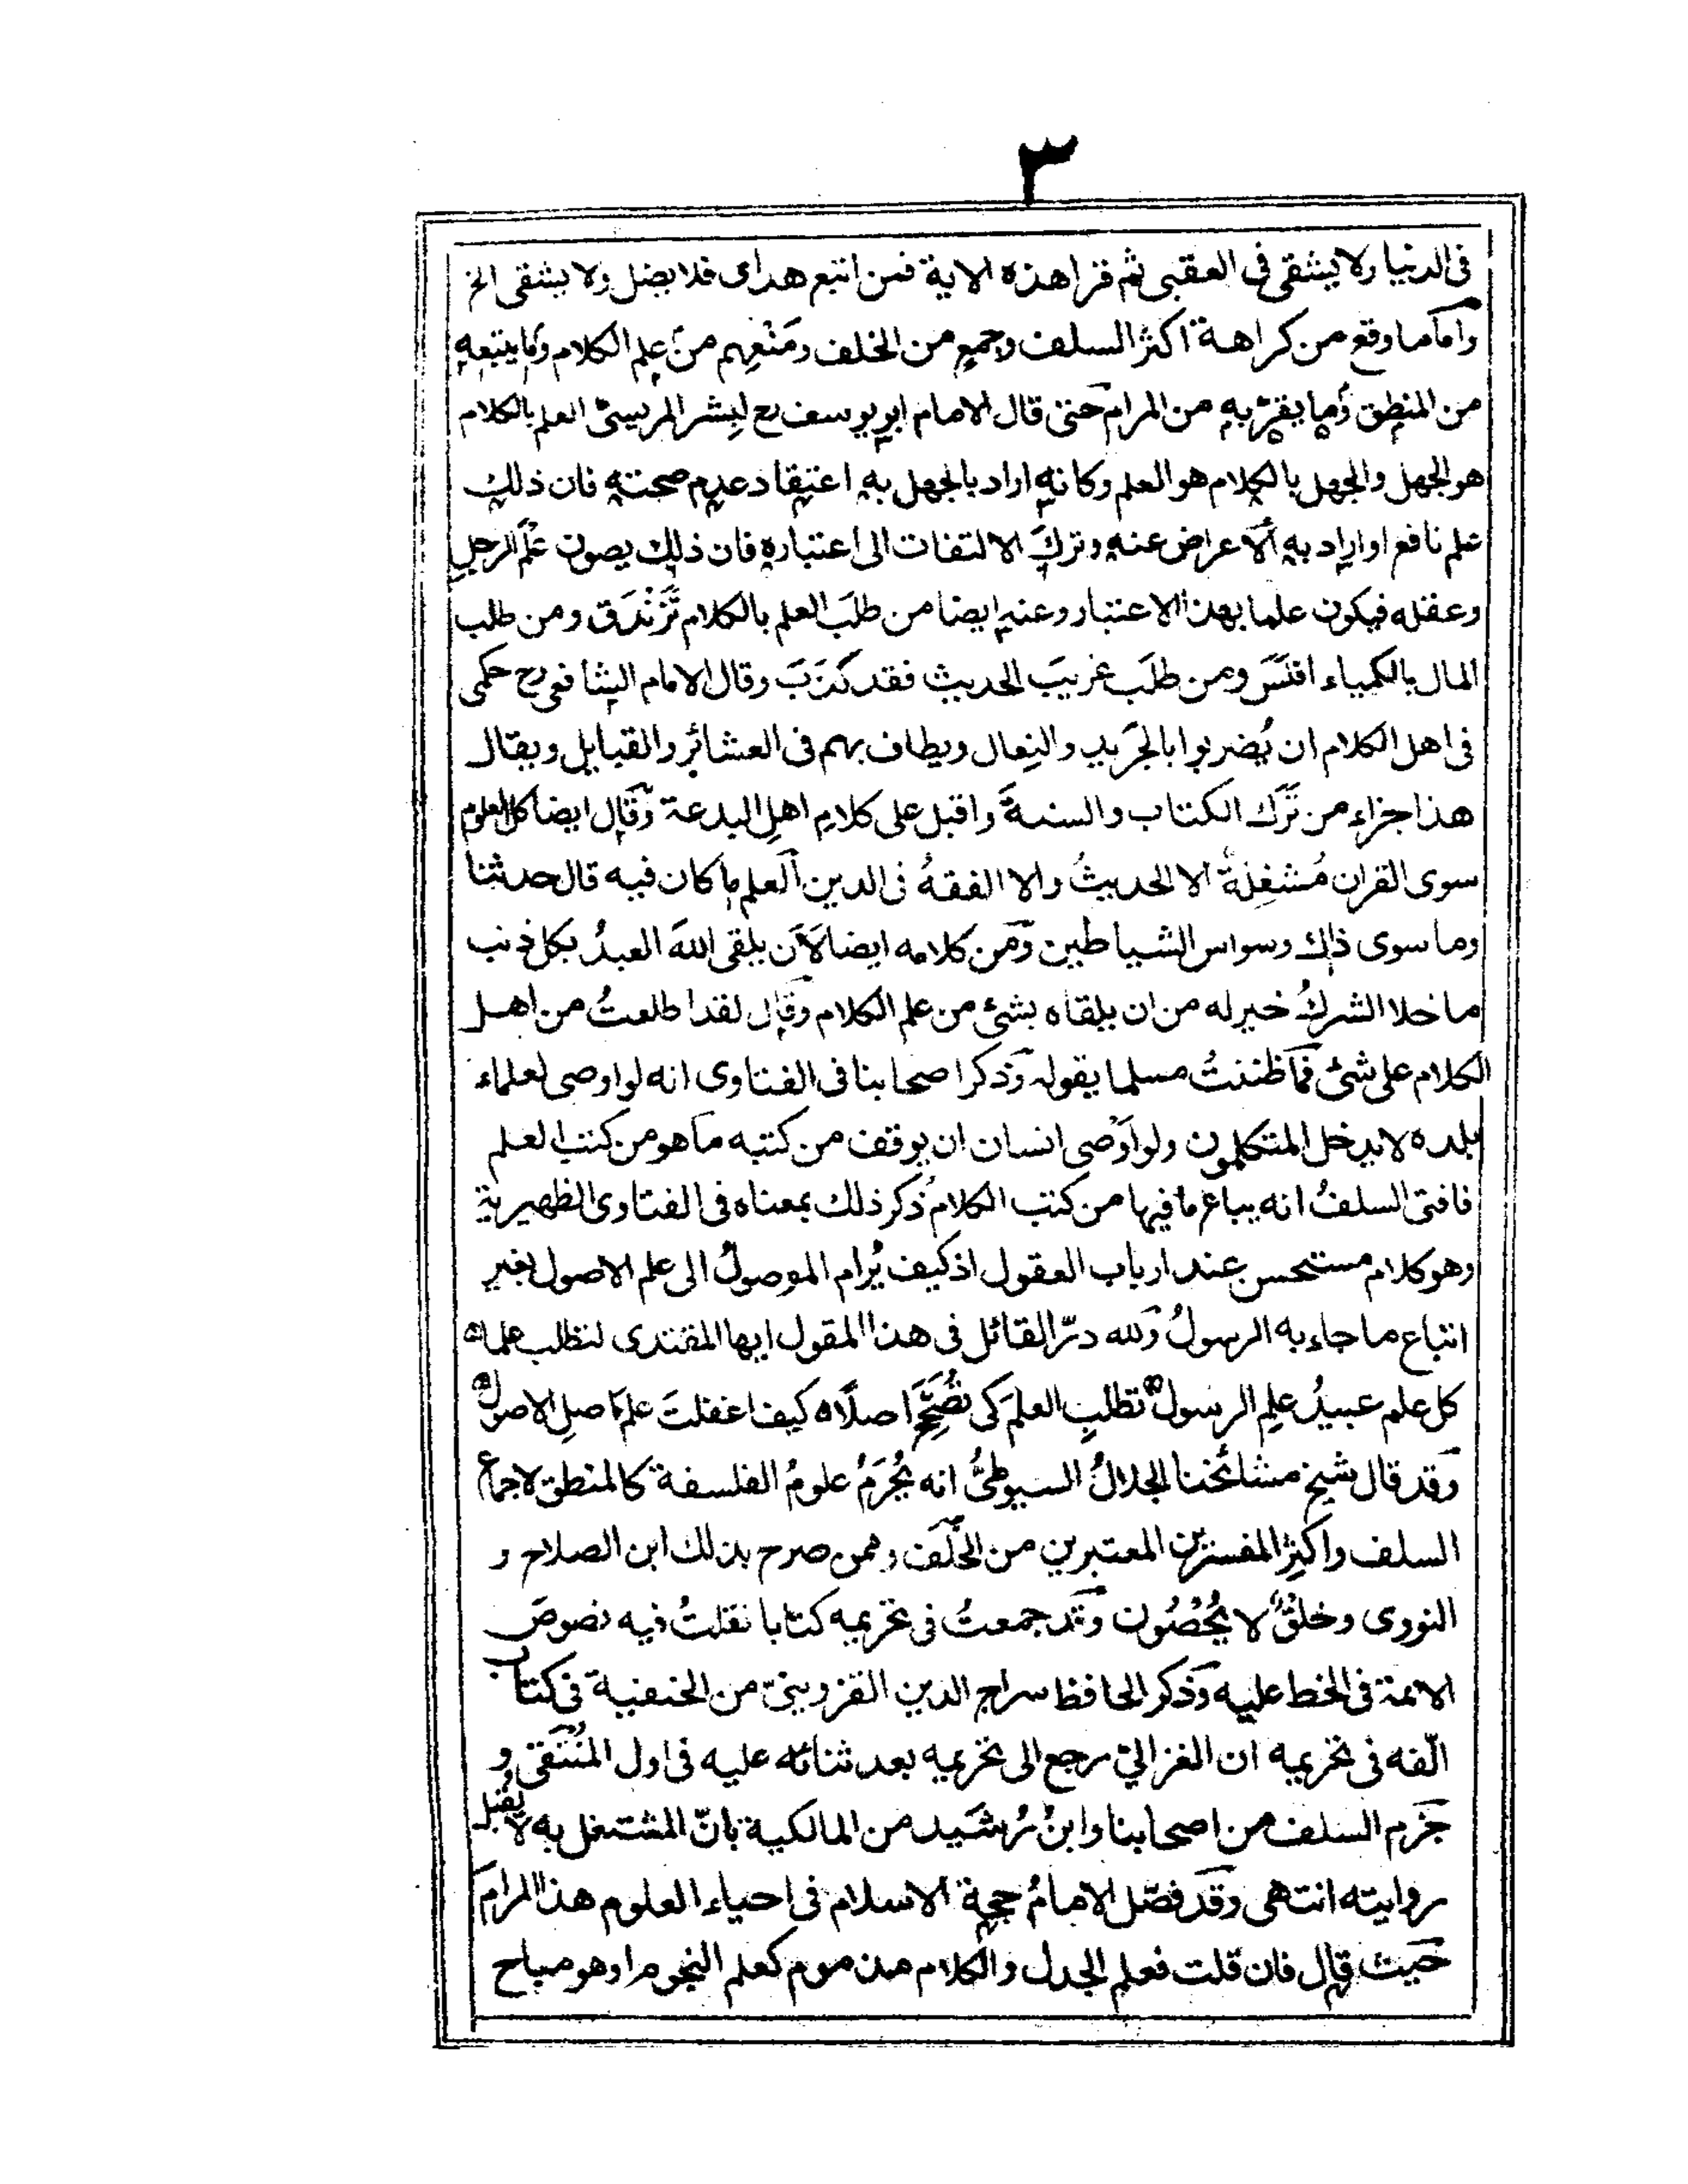 ٣
فى الدنيا ولا يشقى فى العقبى ثم قرا هذه الاية فمن اتبع هداى فلا يضل ولا يشقى الخ
وامّا ما وقع من كراهة اكثر السلف وجمعٍ من الخلف ومَنْعِهم من علم الكلام وما يتبعه
من المنطق وما يقرّبه من المرام حتى قال الامام ابو يوسف رح لبِشر المريسىّ العلم بالكلام
هو الجهل والجهل بالكلام هو العلم وكانه اراد بالجهل به اعتقاد عدم صحته فان ذلك
علم نافع او اراد به الاعراض عنه وتركَ الالتفات الى اعتباره فان ذلك يصون علْم الرجل
وعقله فيكون علما بهذا الاعتبار وعنه ايضا من طلَب العلم بالكلام تَزَنْدَق ومن طلب
المال بالكمياء افلسَ ومن طلَب غريبَ الحديث فقد كذَبَ وقال الامام الشافعى رح حكمى
فى اهل الكلام ان يُضربوا بالجَريد والنِعال ويطاف بهم فى العشائر والقبايل ويقال
هذا جزاء من تَرَك الكتاب والسنةَ واقبل على كلامِ اهلِ البدعة وقال ايضا كل العلوم
سوى القران مُشغِلةٌ الا الحديثُ والا الفقهُ فى الدين العلم ما كان فيه قال حدثنا
وما سوى ذاك وسواس الشياطين ومن كلامه ايضا لاَن يلقى اللهَ العبدُ بكل ذنب
ما خلا الشركُ خير له من ان يلقاه بشئ من علم الكلام وقال لقد اطلعتُ من اهل
الكلام على شئ فما ظننتُ مسلما يقوله وذكر اصحابنا فى الفتاوى انه لو اوصى لعلماء
بلده لا يدخل المتكلمون ولو اوْصى انسان ان يوقف من كتبه ما هو من كتب العلم
فافتى السلفُ انه يباع ما فيها من كتب الكلام ذكر ذلك بمعناه فى الفتاوى الظهيرية
وهو كلام مستحسن عند ارباب العقول اذ كيف يُرام الموصولُ الى علم الاصول بغير
اتباع ما جاء به الرسولُ ولله درّ القائل فى هذا المقول ايها المقتدى لتطلب علما
كل علم عبيدُ علِم الرسول تطلب العلمَ كى تُصَحِّحَ اصلاً كيف اغفلتَ علمَ اصلِ الاصول
وقد قال شيخ مشائخنا الجلالُ السيوطىُّ انه يَحْرُمُ علومُ الفلسفة كالمنطق لاجماع
السلف واكثر المفسرين المعتبرين من الخلَف وممن صرح بذلك ابن الصلاح و
النووى وخلقٌ لا يُحْصُون وقد جمعتُ فى تحريمه كتابا نقلتُ فيه نصوصَ
الائمة فى الخط عليه وذكر الحافظ سراج الدين القزوينىّ من الحنفية فى كتاب
الّفه فى تحريمه ان الغزالىّ رجع الى تحريمه بعد ثنائه عليه فى اول المُنْتَقى و
جَزم السلف من اصحابنا وابنُ رُشَيد من المالكية بانّ المشتغل به لا يُقبل
روايته انتهى وقد فصّل الامامُ حجة الاسلام فى احياء العلوم هذا المرامَ
حيث قال فان قلت فعلم الجدل والكلام مذموم كعلم النجوم او هو مباح